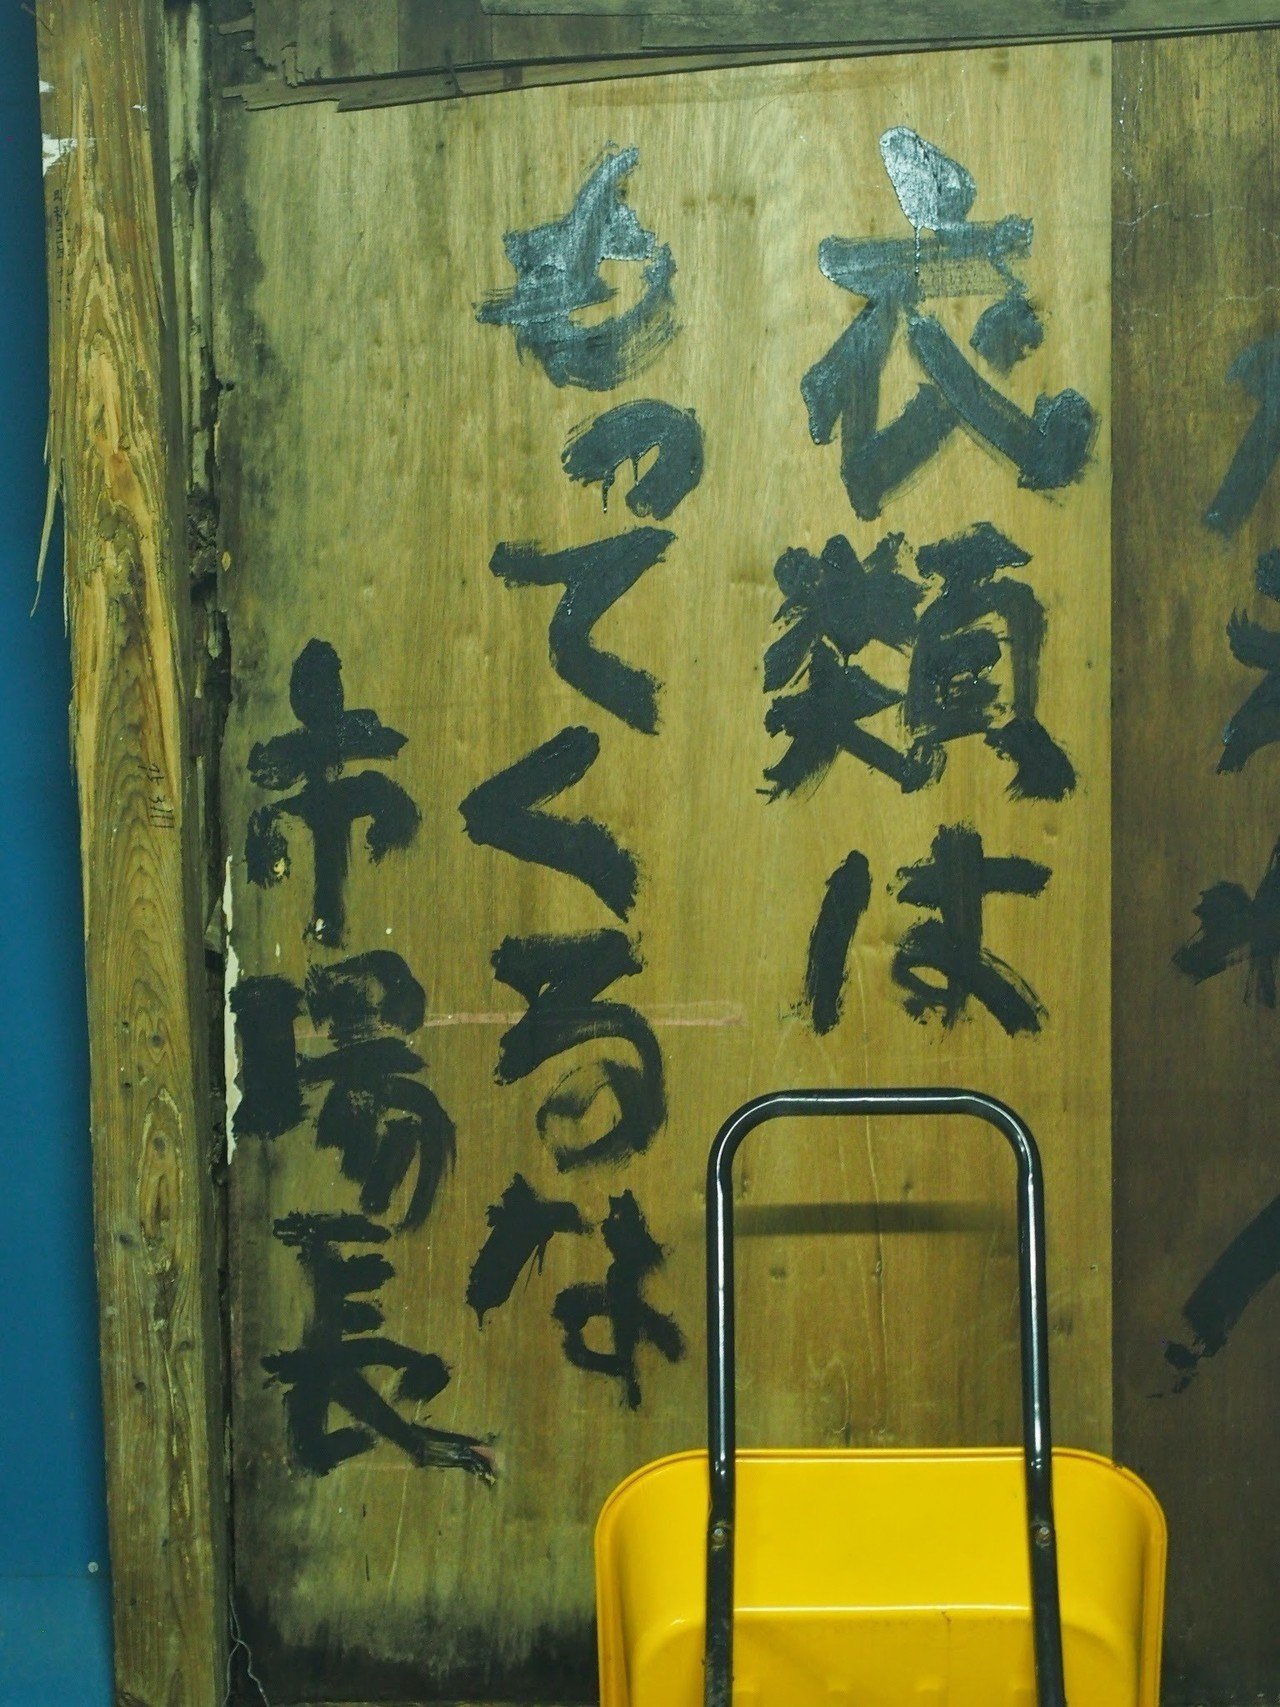 衣類は
もってくるな
市場長